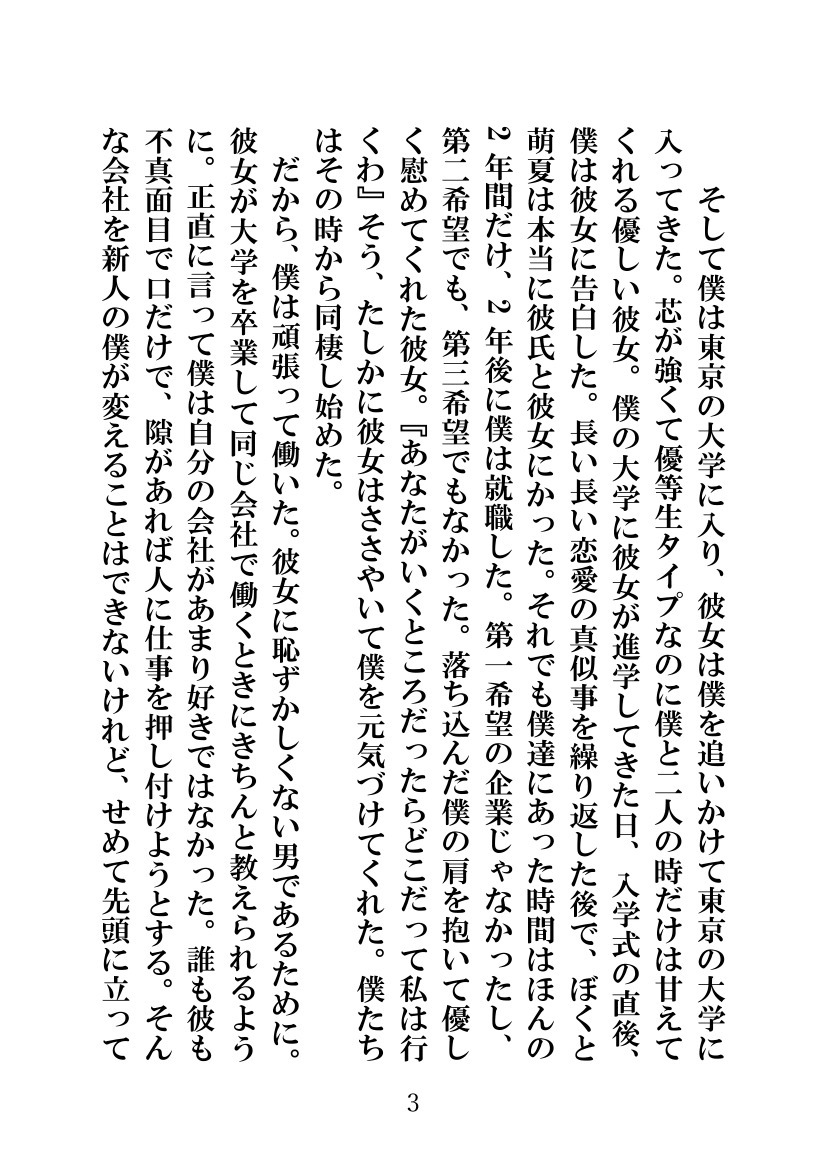 そして僕は東京の大学に入り、彼女は僕を追いかけて東京の大学に
入ってきた。芯が強くて優等生タイプなのに僕と二人の時だけは甘えて
くれる優しい彼女。僕の大学に彼女が進学してきた日、入学式の直後、
僕は彼女に告白した。長い長い恋愛の真似事を繰り返した後で、ぼくと
萌夏は本当に彼氏と彼女にかった。それでも僕達にあった時間はほんの
2年間だけ、2年後に僕は就職した。第一希望の企業じゃなかったし、
第二希望でも、第三希望でもなかった。落ち込んだ僕の肩を抱いて優し
く慰めてくれた彼女。『あなたがいくところだったらどこだって私は行
くわ』そう、たしかに彼女はささやいて僕を元気づけてくれた。僕たち
はその時から同棲し始めた。
だから、僕は頑張って働いた。彼女に恥ずかしくない男であるために。
彼女が大学を卒業して同じ会社で働くときにきちんと教えられるよう
に。正直に言って僕は自分の会社があまり好きではなかった。誰も彼も
不真面目で口だけで、隙があれば人に仕事を押し付けようとする。そん
な会社を新人の僕が変えることはできないけれど、せめて先頭に立って
3